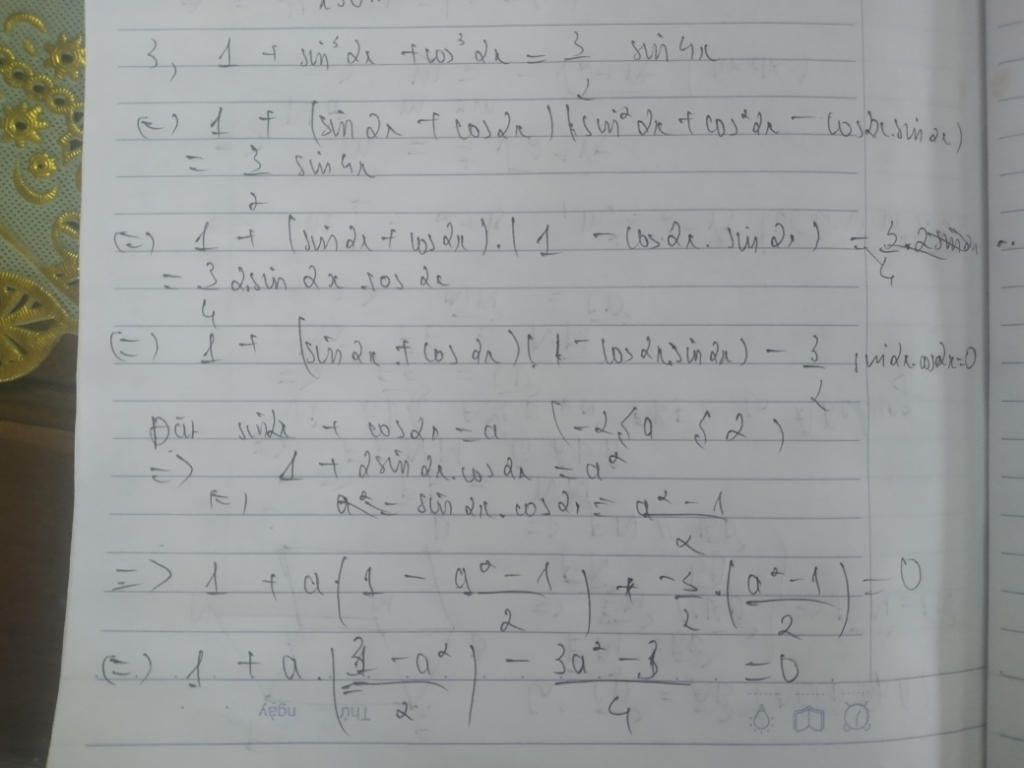 3, 1 + sin³2x + cos³2x = 3/2 sin4x
(=) 1 + (sin2x + cos2x)(sin²2x + cos²2x - cos2x.sin2x)
= 3/2 sin4x
(=) 1 + (sin2x + cos2x).(1 - cos2x.sin2x) = 3/4.2sin2x
= 3/4 2sin2x.cos2x
(=) 1 + (sin2x + cos2x)(1 - cos2x.sin2x) - 3/2 sin2x.cos2x=0
Đặt sin2x + cos2x = a (-2 ≤ a ≤ 2)
=> 1 + 2sin2x.cos2x = a²
(=) sin2x.cos2x = (a²-1)/2
=> 1 + a(1 - (a²-1)/2) + -3/2.((a²-1)/2) = 0
(=) 1 + a.((3-a²)/2) - (3a²-3)/4 = 0
Thứ ngày